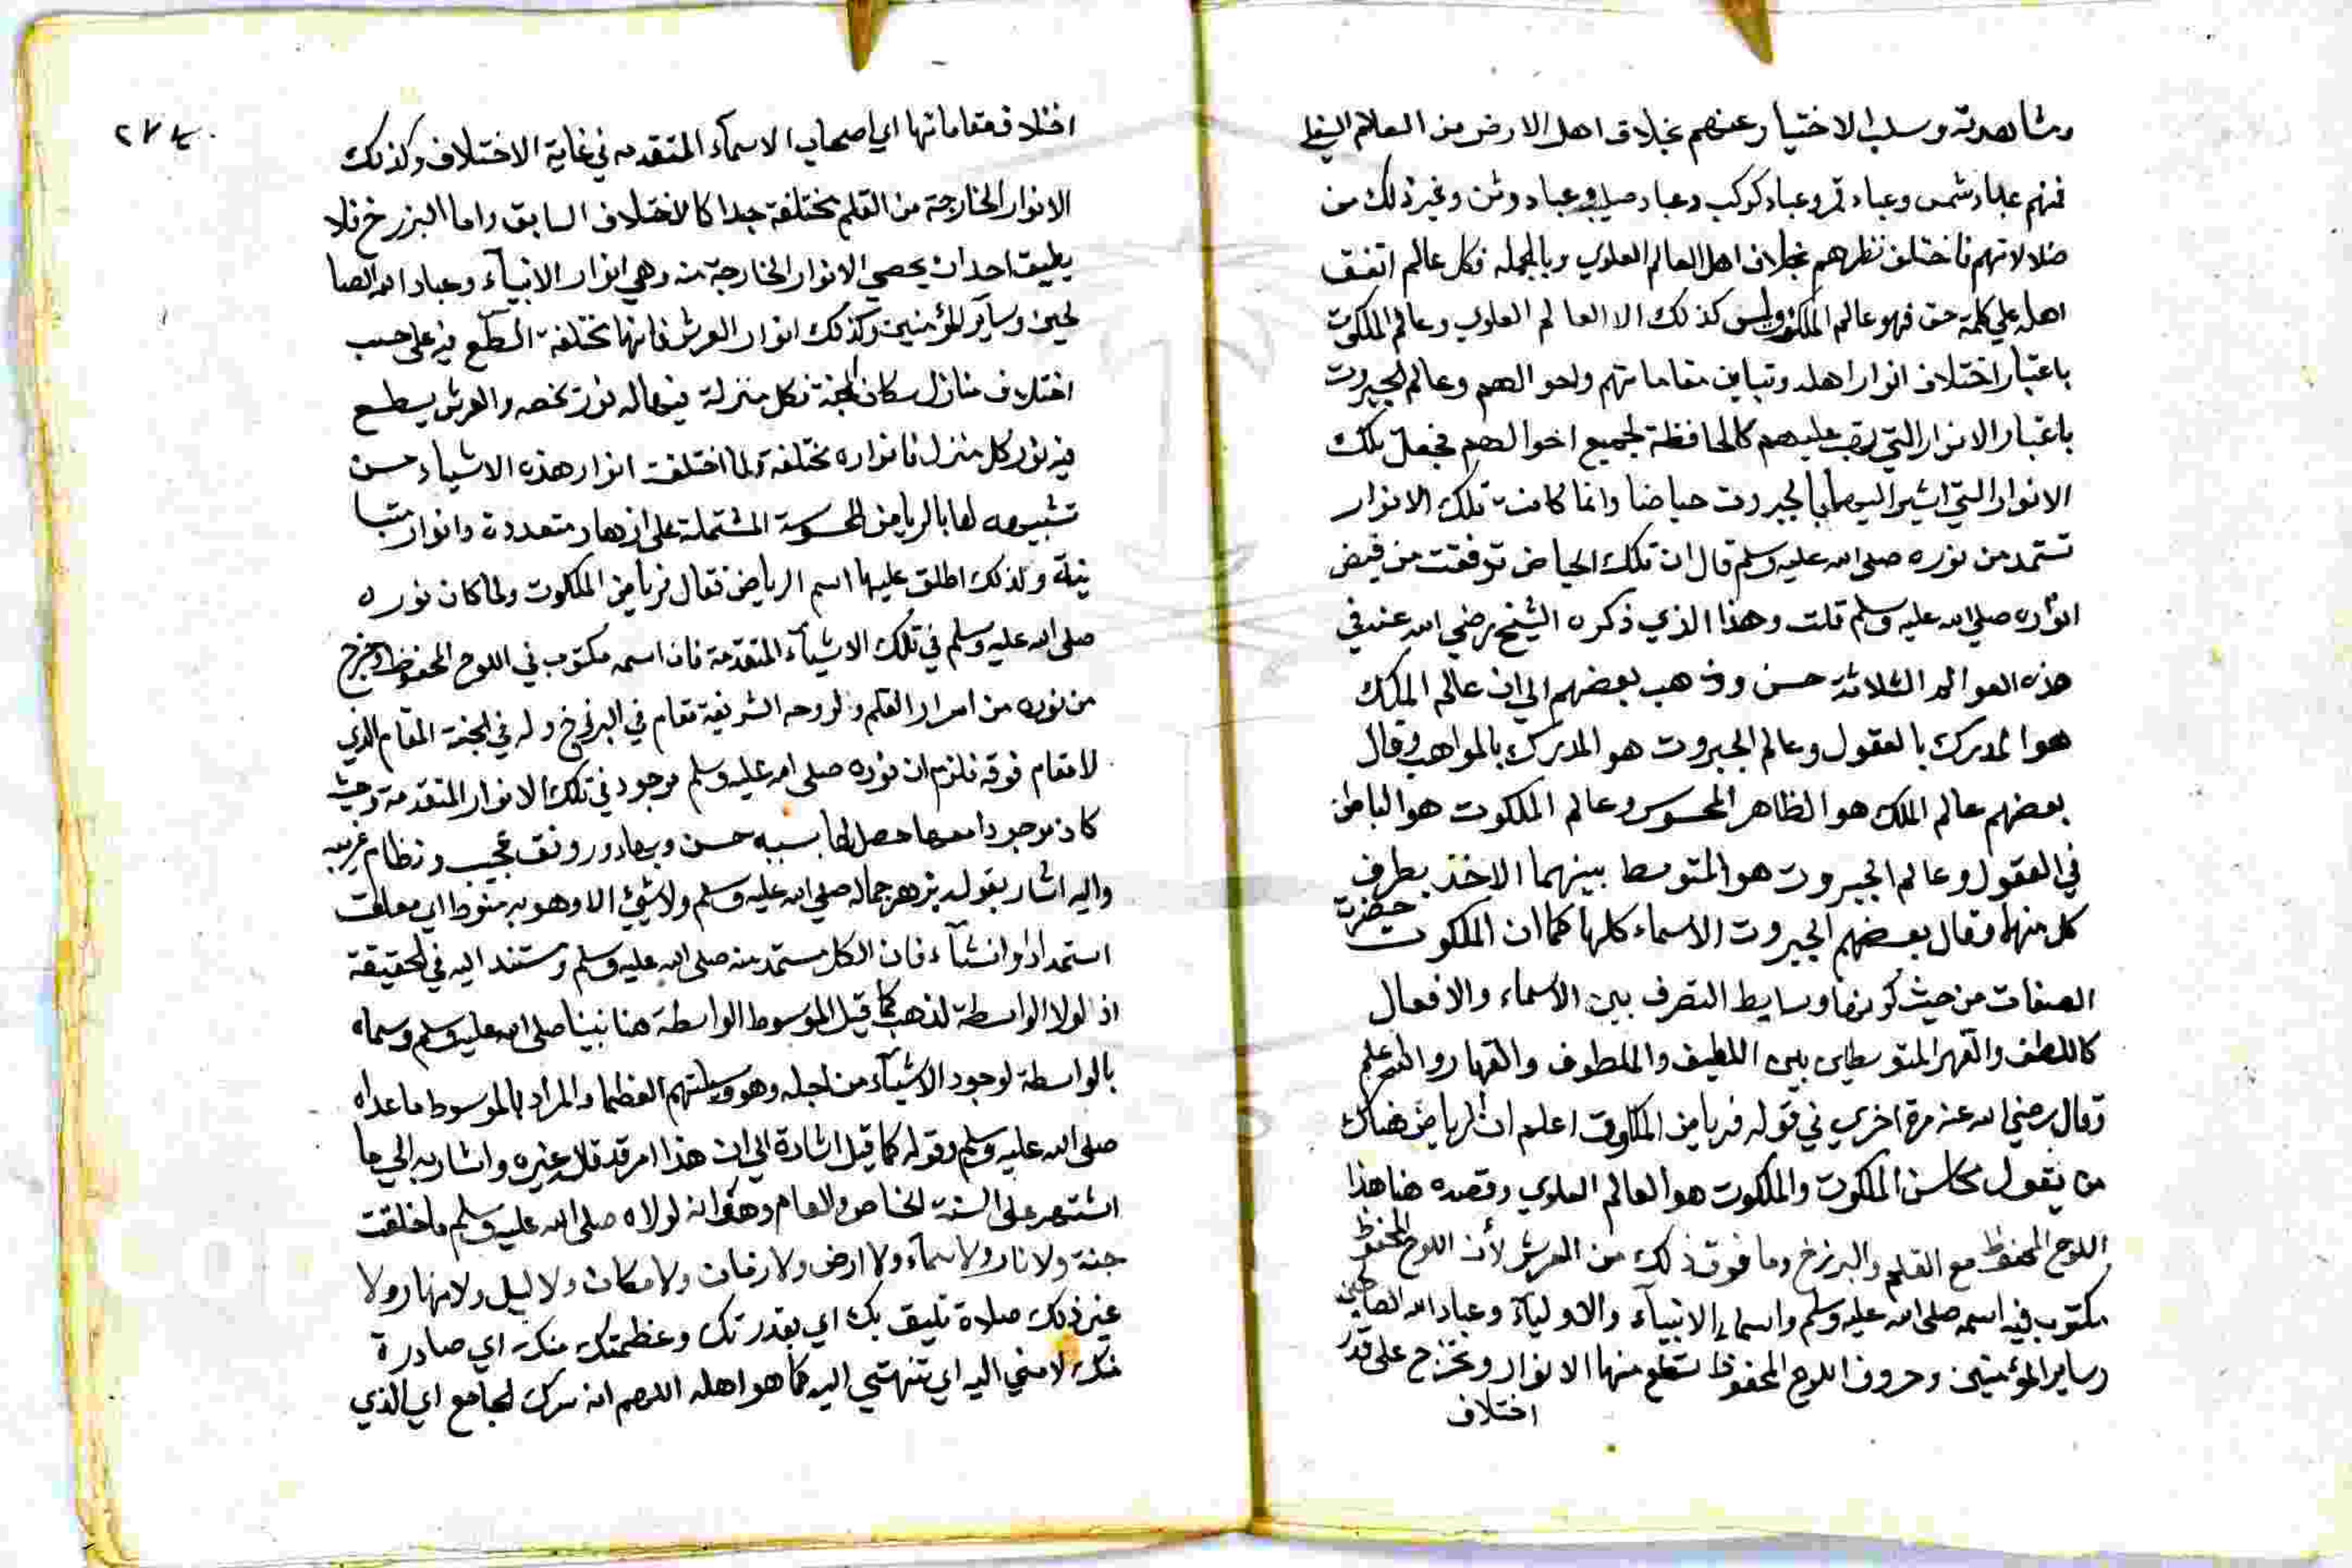 ومشاهدته وسلب الاختيار عنهم بخلاف اهل الارض من العالم السفلي
فمنهم عباد شمس وعباد قمر وعباد كوكب وعباد صليب وعباد وثن وغير ذلك من
ضلالاتهم فاختلف نظرهم بخلاف اهل العالم العلوي وبالجمله فكل عالم اتفق
اهله علي كلمة حق فهو عالم الملكوت وليس كذلك الا العالم العلوي وعالم الملكوت
باعتبار اختلاف انوار اهله وتباين مقاماتهم واحوالهم وعالم الجبروت
باعتبار الانوار التي تهب عليهم كالحافظة لجميع احوالهم فجعل تلك
الانوار التي اشير اليها بالجبروت حياضا وانما كانت تلك الانوار
تستمد من نوره صلى الله عليه وسلم قال ان تلك الحياض تدفقت من فيض
انواره صلي الله عليه وسلم قلت وهذا الذي ذكره الشيخ رضي الله عنه في
هذه العوالم الثلاثة حسن وذهب بعضهم الي ان عالم الملك
هو المدرك بالعقول وعالم الجبروت هو المدرك بالمواهب وقال
بعضهم عالم الملك هو الظاهر المحسوس وعالم الملكوت هو الباطن
في العقول وعالم الجبروت هو المتوسط بينهما الاخذ بطرف
كل منهما وقال بعضهم الجبروت الاسماء كلها كما ان الملكوت حضرت
الصفات من حيث كونها وسايط التصرف بين الأسماء والافعال
كاللطف والقهر المتوسطين بين اللطيف والملطوف والقهار والمقهور
وقال رضي الله عنه مرة اخري في قوله فرياض الملكوت اعلم ان الرياض هناك
من يقول محاسن الملكوت والملكوت هو العالم العلوي وقصده هنا هذا
اللوح المحفوظ مع القلم والبرزخ وما فوق ذلك من العرش لأن اللوح المحفوظ
مكتوب فيه اسمه صلى الله عليه وسلم واسماء الانبيآء والاوليآء وعباد الله الصالحين
وساير المؤمنين وحروف اللوح المحفوظ تسطع منها الانوار وتخرج على قدر
اختلاف
اختلاف مقاماتها اي اصحاب الاسمآء المتقدمه في غاية الاختلاف وكذلك
الانوار الخارجة من القلم مختلفة جدا كالاختلاف السابق واما البرزخ فلا
يطيق احد ان يحصي الانوار الخارجة منه وهي انوار الانبيآء وعباد الله الصا
لحين وسآير المؤمنين وكذلك انوار العرش فانها مختلفة تسطع فيه على حسب
اختلاف منازل سكان الجنة فكل منزلة فيها له نور تخصه والعرش يسطع
فيه نور كل منزل فانواره مختلفة ولما اختلفت انوار هذه الاشياء حسن
تشبيهه لها بالرياض المحسوسة المشتملة على ازهار متعددة وانوار متبا
ينة ولذلك اطلق عليها اسم الرياض فقال فرياض الملكوت ولما كان نوره
صلى الله عليه وسلم في تلك الاشيآء المتقدمة فان اسمه مكتوب في اللوح المحفوظ وخرج
من نوره من اسرار القلم ولروحه الشريفة مقام في البرزخ وله في الجنة المقام الذي
لا مقام فوقه فلزم ان نوره صلى الله عليه وسلم موجود في تلك الانوار المتقدمة وحيث
كان موجودا معها حصل لها بسببه حسن وبهاء ورونق عجيب ونظام غريب
واليه اشار بقوله بزهر جماله صلي الله عليه وسلم ولا شيئ الا وهو به منوط اي معلق
استمدادا وانشآء فان الكل مستمد منه صلى الله عليه وسلم ومستند اليه في الحقيقة
اذ لولا الواسطة لذهب كما قيل الموسوط الواسطة هنا نبينا صلى الله عليه وسلم وسماه
بالواسطة لوجود الاشيآء من اجله وهو وسيلتهم العظمى والمراد بالموسوط ما عداه
صلى الله عليه وسلم وقوله كما قيل اشارة الي ان هذا امر قد قاله غيره واشار به الي ما
اشتهر على السنة الخاص والعام وهو انه لولاه صلى الله عليه وسلم ما خلقت
جنة ولا نار ولا سمآء ولا ارض ولا زمان ولا مكان ولا ليل ولا نهار ولا
غير ذلك صلاة تليق بك اي بقدرتك وعظمتك منك اي صادرة
منك لا مني اليه اي تنتهي اليه كما هو اهله اللهم انه سرك الجامع اي الذي